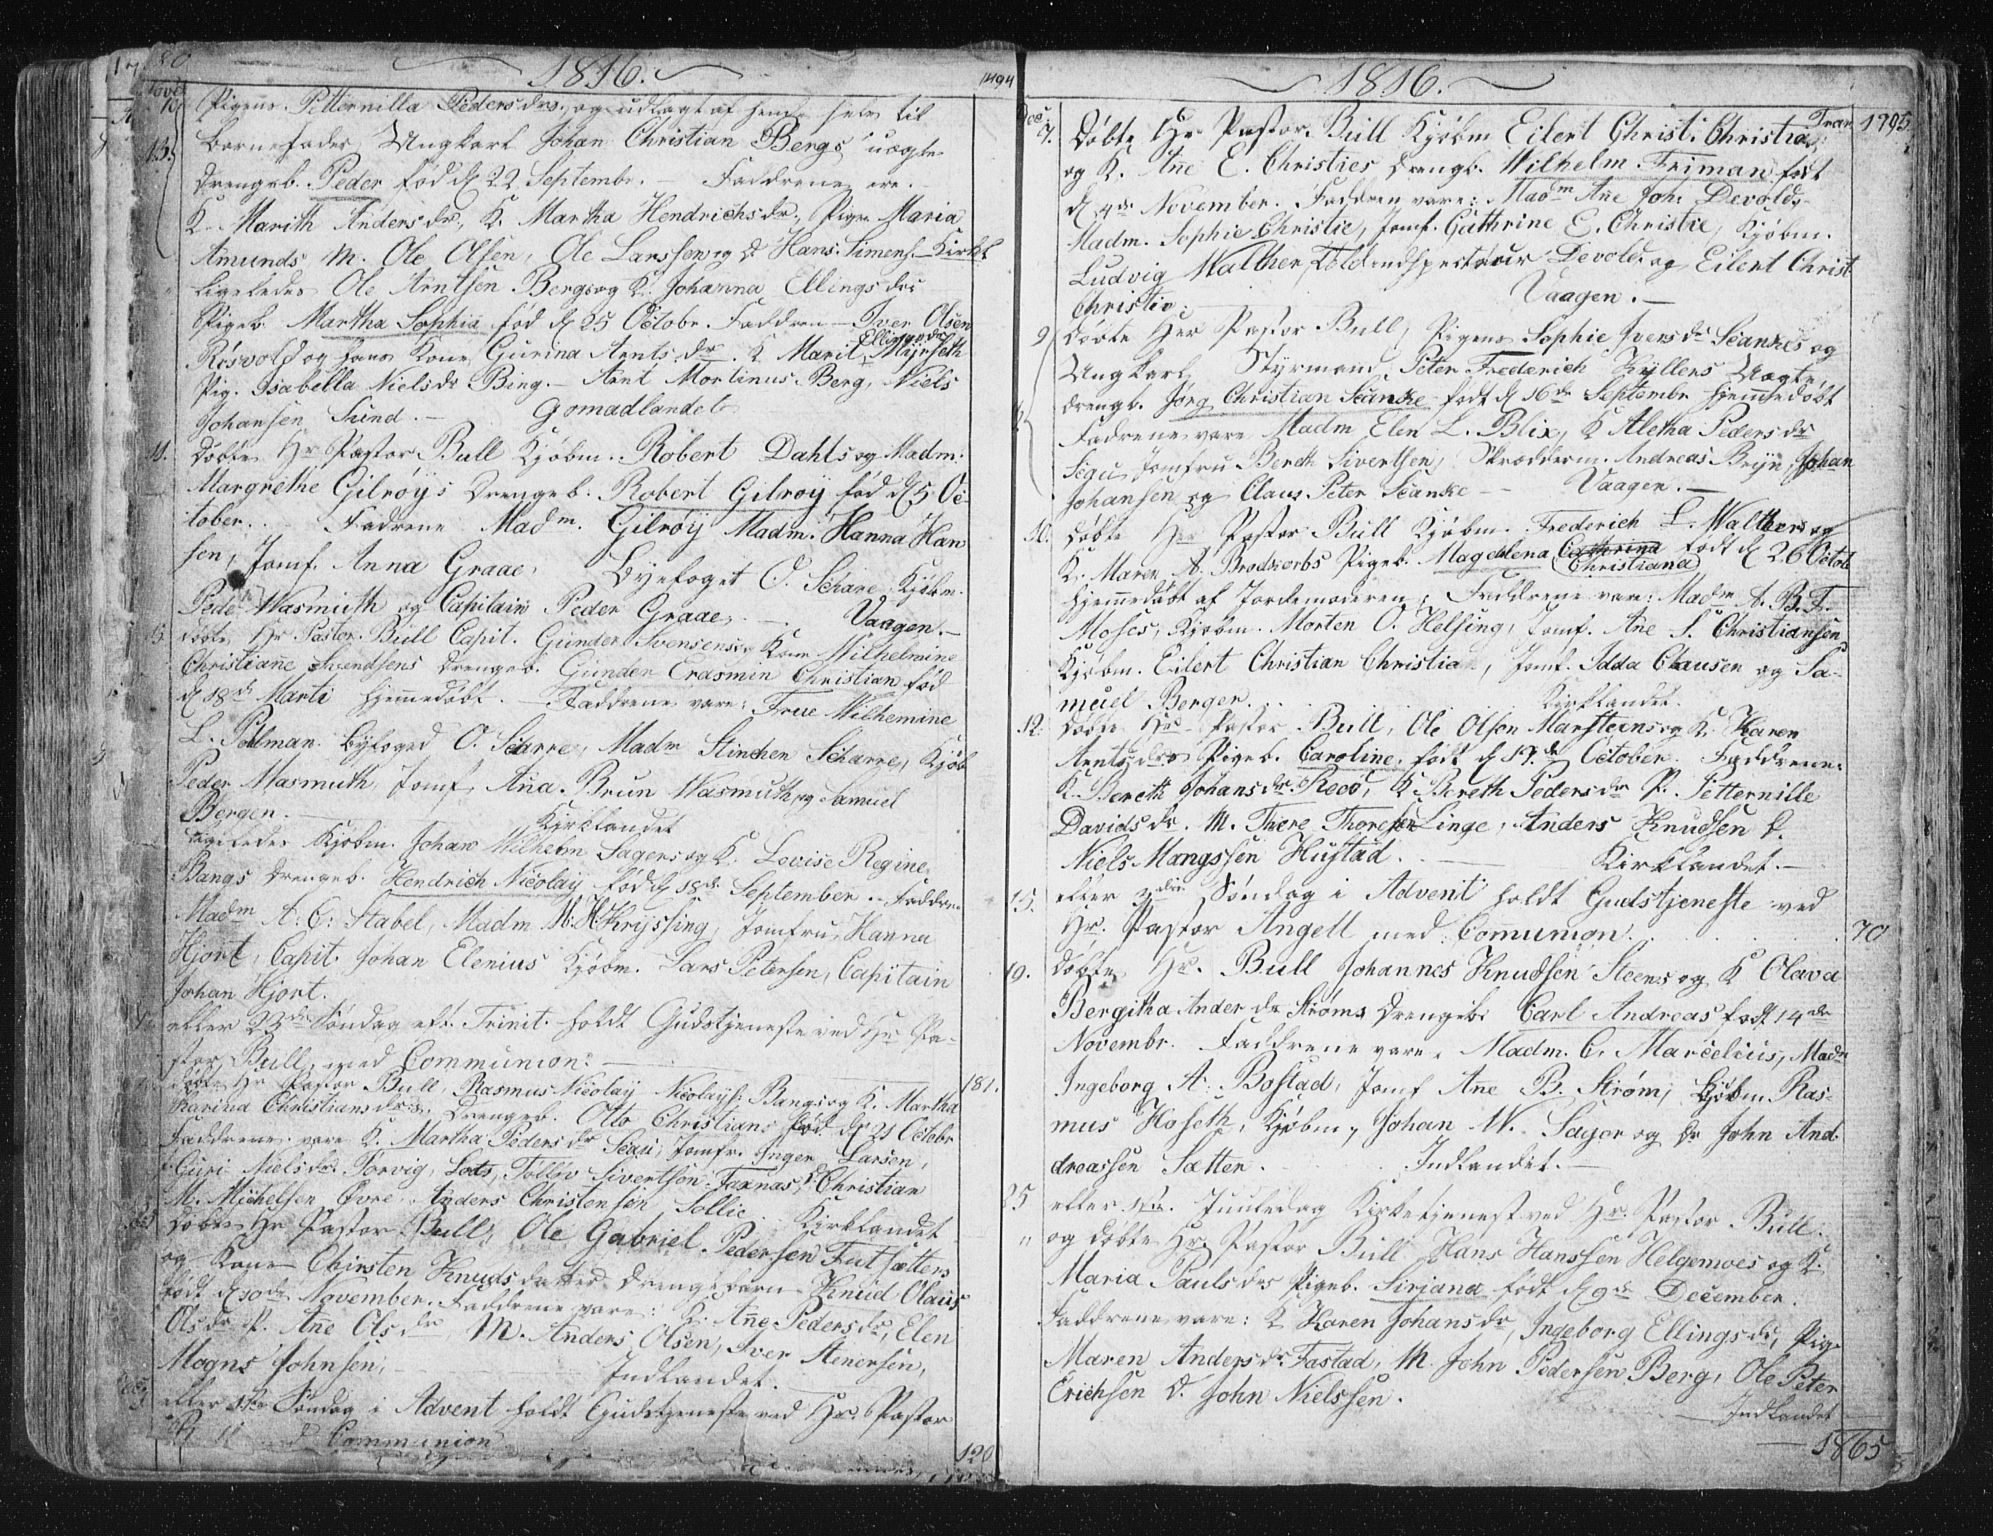 1816.
1494
Pigens Petternilla Pedersdrs. og udlagt af hende selv til
Barnefader Ungkarl Johan Christian Bergs uægte
Drengeb. Peder fød d 22 Septembr. — Faddrene ere.
K. Marith Andersdr., K. Martha Hendrichsdr., Pigen Maria
Amunds M. Ole Olsen, Ole Larssen og D Hans Simens. Kirkl.
ligeledes Ole Arntsen Bergs og K. Johanna Ellingsdrs
Pigeb. Martha Sophia fød d 25 Octobr. Faddren — Iver Olsen
Røsvold og hans Kone Gurina Arntsdr. K Marit Ellingsdr Myrseth
Pig. Isabella Nielsdr Bing. — Arnt Mortinus Berg, Niels
Johansen Sund. — Gomadlandet
Døbte Hr Pastor Bull Kjøbm. Robert Dahls og Madm.
Margrethe Gilroys Drengeb. Robert Gilroy fød d 5 Oc-
tober. Fadrene Madm. Gilroy Madm. Hanna Han
sen, Jomf. Anna Graae, Byefoget O. Scharre, Kjøbm.
Peder Wasmuth og Capitain Peder Graae. Vaagen. —
døbte Hr Pastor Bull Capit. Gunder Svensens og Kone Wilhelmine
Christiane Svendsens Drengeb. Gunder Erasmin Christian fød
d 18de Marti hjemmedøbt. — Faddrene vare: Frue Wilhemine
L. Pohlman Byfoged O. Scharre, Madm Stinchen Scharre, Kjøb
Peder Wasmuth, Jomf. Ana Brun Wasmuth, og Samuel
Bergen. — Kirklandet
ligeledes Kjøbm. Johan Wilhelm Sagers og K. Lovise Regine
Bangs Drengeb. Hendrich Nicolay fød d 18de September. Faddren
Madm A: C: Stabel, Madm M: H: Kryssing, Jomfru Hanna
Hjort, Capit. Johan Elenius Kjøbm. Lars Petersen, Capitain
Johan Hjort.
efter 23de Søndag eft. Trinit. holdt Gudstjeneste ved Hr Pa-
stor Bull, med Communion: — 181.
døbte Hr Pastor Bull, Rasmus Nicolay Nicolays: Bangs og K. Martha
Karina Christiansdrs. Drengeb. Otto Christians fød d 21 Octobr
Faddrene vare K. Martha Pedersdr Scari, Jomfr. Inger Larsen,
Guri Nielsdr. Torvig, Lots, Tollev Sivertsen Faxnas, D. Christian
M. Michelsen Øvre Anders Christensen Sollie. Kirklandet
Døbte Hr Pastor Bull, Ole Gabriel Pedersen Futsættens
og Kone Chirsten Knudsdatters Drengebarn Knud Olaus
født d 30de November. Faddrene vare: K. Ane Pedersdr, Elen
Olsdr P. Ane Olsdr M. Anders Olsen, Iver Stenersen,
Mogns Johnsen, — Indlandet.
efter 1ste Søndag i Advent holdt Gudstjeneste ved Hr. Pastor
Communion 120
1816.
Tran 1795
Dec. 7. Døbte Hr Pastor Bull Kjøbm Eilert Christi: Christies
og K. Ane E. Christies Drengb. Wilhelm Friman født
d 4de November. Faddren vare: Madm Ane Joh: Devolds
Madm. Sophie Christie, Jomf. Cathrine E. Christie, Kjøbm.
Ludvig Walther, Toldindspecteur Devold og Eilert Christ.
Christie: Vaagen. —
9 Døbte Her Pastor Bull, Pigens Sophie Iversdr Scanckes og
Ungkarl Styrmand Peter Frederich Kyllers Uægte
drengb. Jørg Christian Scancke født d 16de Septembr hjemmedøbt
Fadrene vare Madm Elen L. Blix, K Aletha Pedersdr
Segu, Jomfru Bereth Sivertsen, Skrædderm. Andreas Bryn, Johan
Johansen og Claus Peter Scancke — Vaagen. —
10. Døbte Her Pastor Bull Kjøbm. Frederich L. Walthers og
K. Maren A. Brodkorbs Pigeb. Magdelena Cathrina Christiana født d 26 Octob
hjemmedøbt af Jordemoderen; Faddrene var: Madm A. B. F.
Moses, Kjøbm. Morten O. Helsing, Jomf. Ane S. Christiansen
Kjøbm. Eilert Christian Christian, Jomf. Idda Clausen og Sa-
muel Bergen. Kirklandet.
12. Døbte Hr Pastor Bull, Ole Olsen Marsteens og K. Karen
Arntsdrs Pigeb. Caroline, født d 17de October. Faddrene:
K. Bereth Johansdr Reoo, K. Bereth Pedersdr P. Petternille
Davidsdr. M. Thore Thoresen Linge, Anders Knudsen D.
Niels Mangssen Hustad. — Kirklandet. —
15. efter 3die Søndag i Advent holdt Gudstjeneste ved
Hr. Pastor Angell med Comunion. 70
19. døbte Hr. Bull Johannes Knudsen Steens og K Olava
Bergitha Anderdr Strøms Drengeb: Carl Andreas født 14de
Novembr. Faddrene vare, Madm. C. Marcelius, Madm
Ingeborg A. Bostad, Jomf Ane B. Strøm, Kjøbm. Ras-
mus Hoseth, Kjøbm., Johan W. Sager og Dr John And-
dreassen Sætter. Indlandet. —
25 efter 1ste. Juuledag Kirketjenest ved Hr. Pastor Bull.
" og døbte Hr. Pastor Bull Hans Hanssen Helgemoes og K.
Maria Paulsdrs Pigeb. Sirjana født d 9de December.
Faddrene vare: K Karen Johansdr, Ingeborg Ellingsdr, Pige
Maren Andersdr Fastad, M. John Pedersen Berg, Ole Peter
Erichsen D. John Nielssen.
— Indlandet
1865